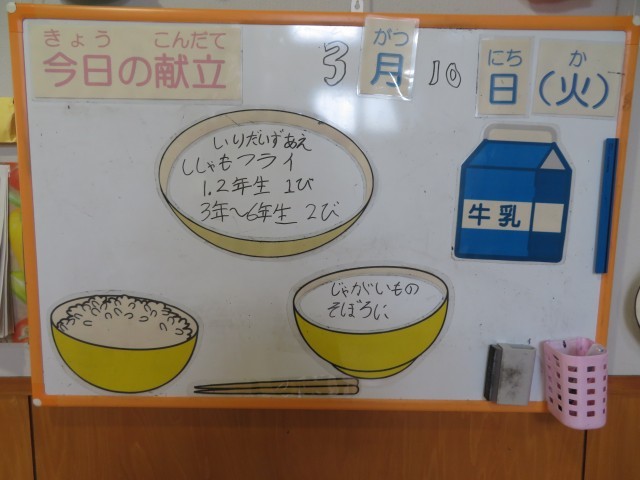 きょう こんだて
今日の献立
3 がつ 10 にち か
月 日 (火)
いりだいずあえ
ししゃもフライ
1.2年生 1び
3年〜6年生 2び
牛乳
じゃがいもの
そぼろに